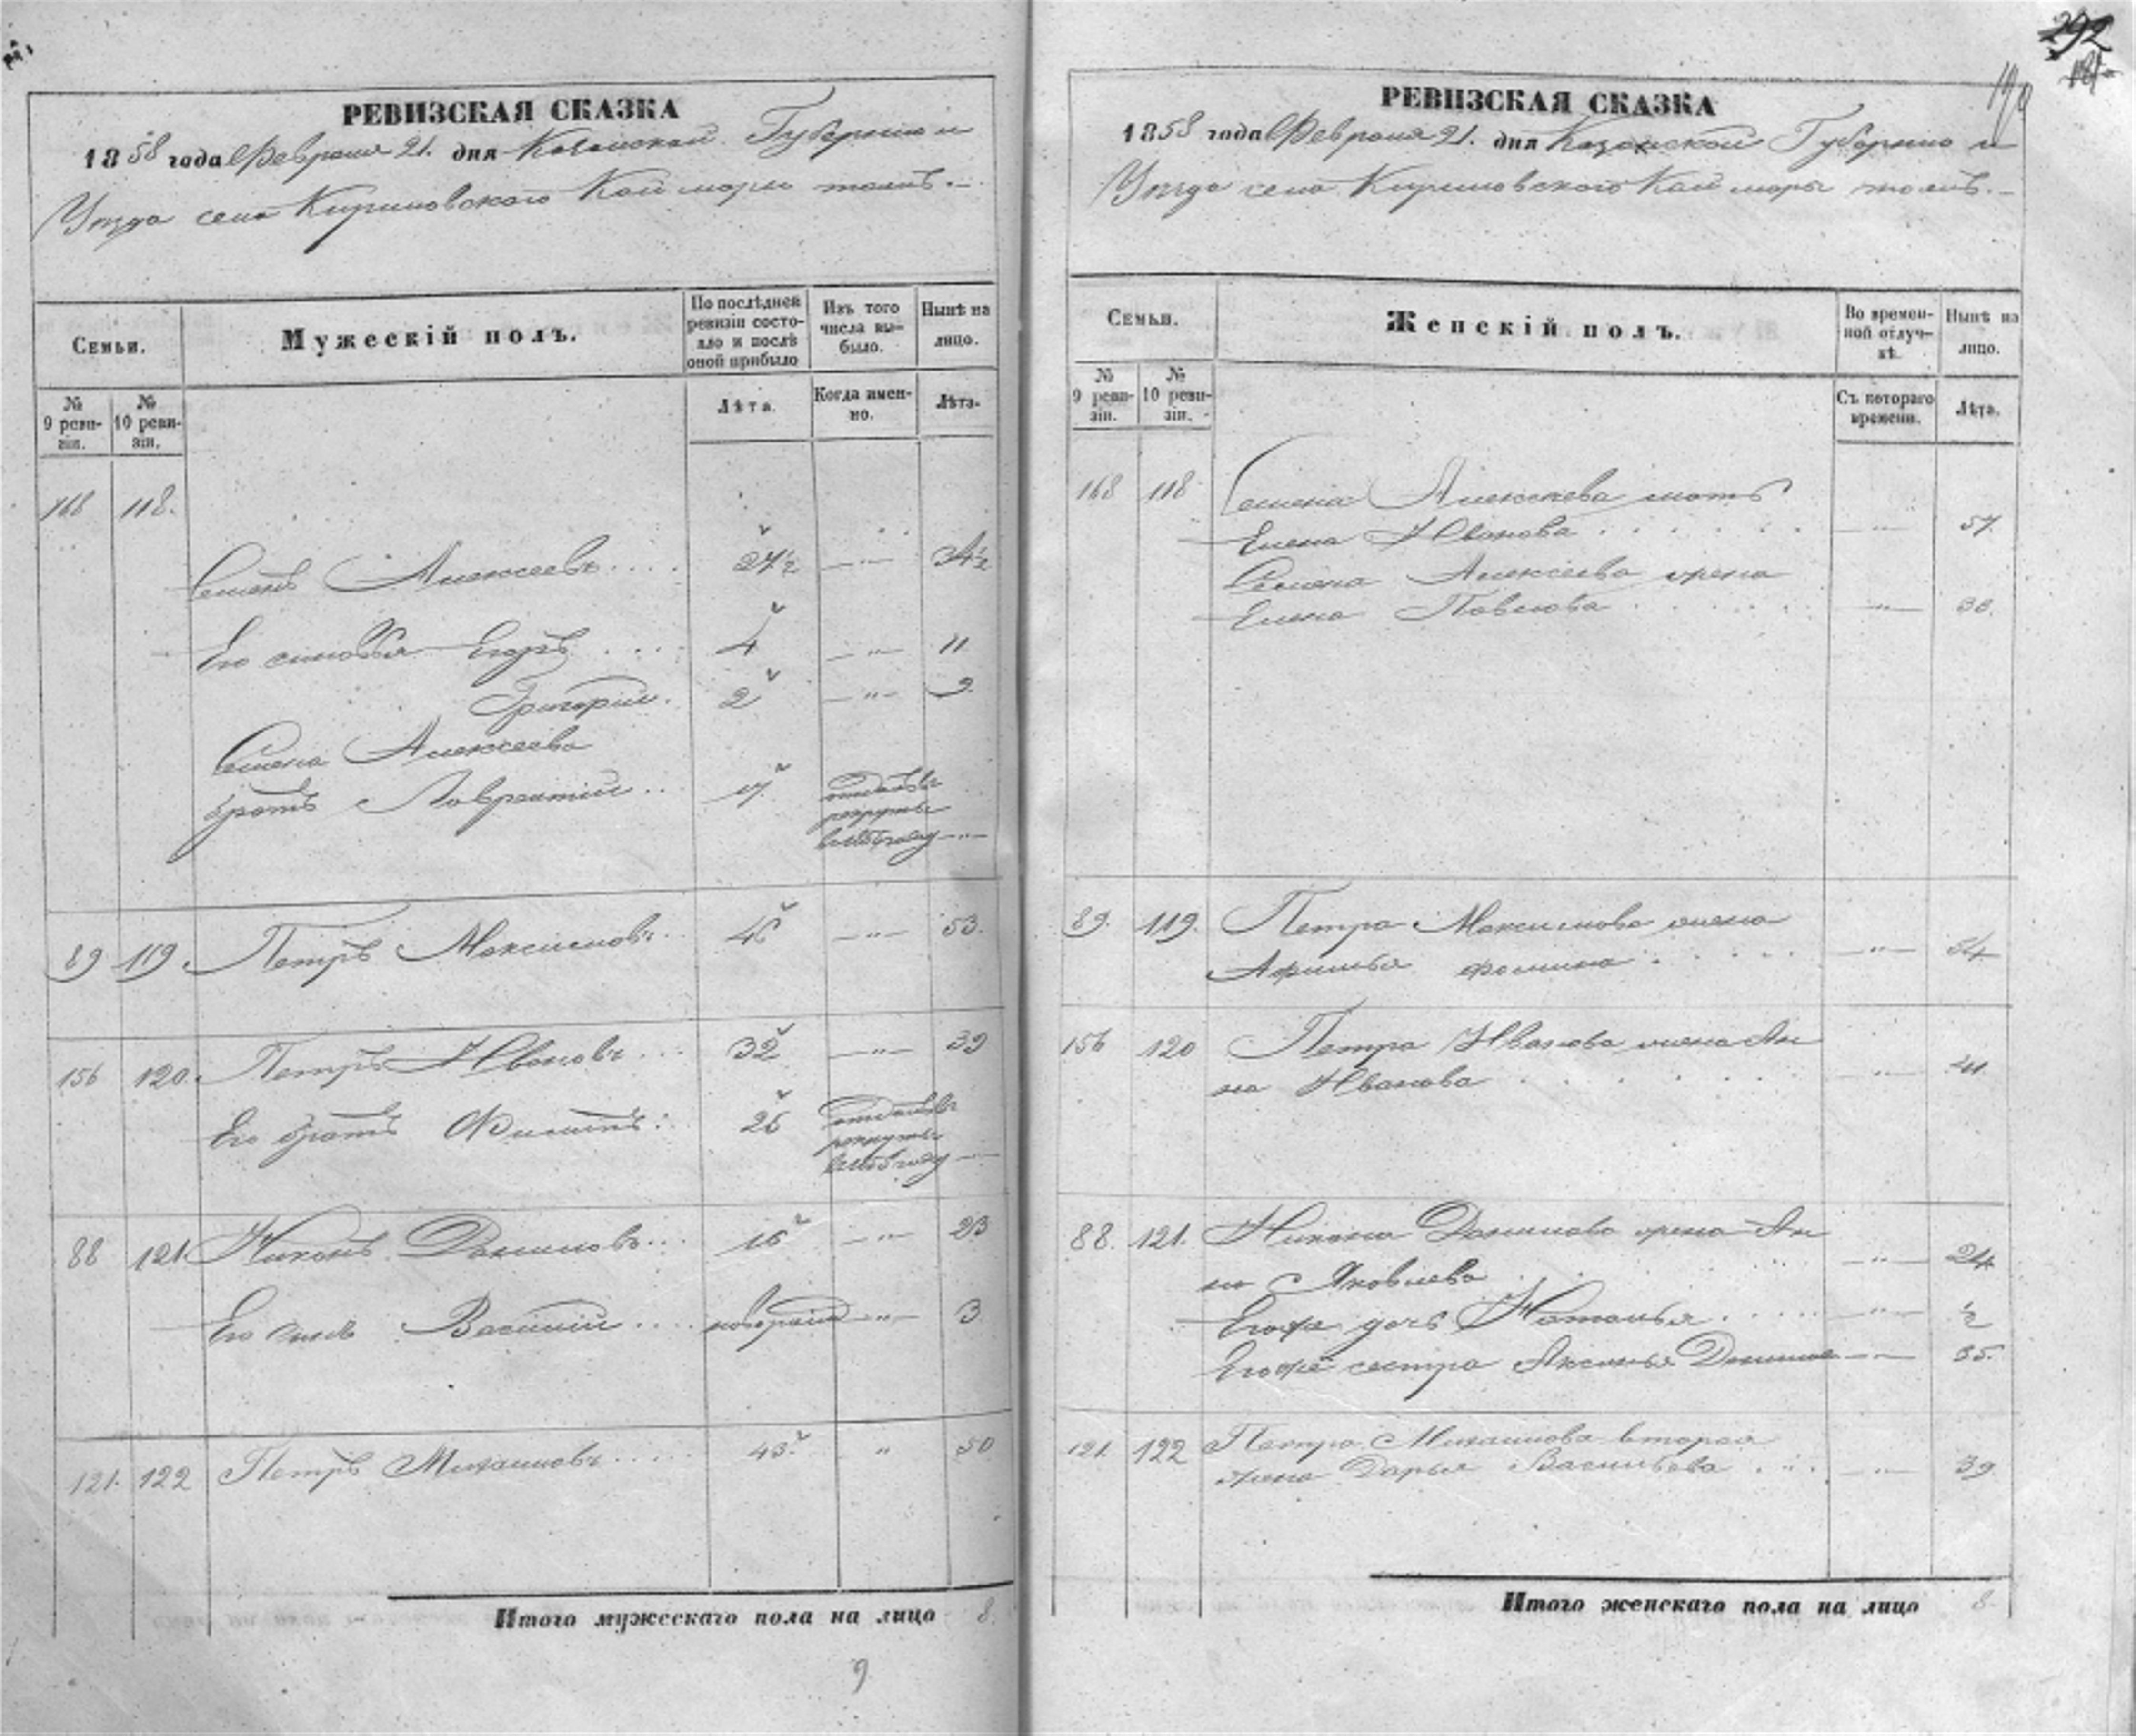 РЕВИЗСКАЯ СКАЗКА
1858 года Февраля 21. дня Казанской Губернии и
Уѣзда села Кириловского Каймары тожъ.
Семьи.
Мужескій полъ.
По послѣдней ревизіи состояло и послѣ оной прибыло
Изъ того числа выбыло.
Нынѣ на лицо.
№ 9 ревизіи.
№ 10 ревизіи.
Лѣта.
Когда именно.
Лѣта.
168 118.
Семенъ Алексеевъ 27½ 34½
Его сыновья Егоръ 4 11
Григорій. 2 9
Семена Алексеева
братъ Лаврентій 17 отданъ въ
рекруты
119. Петръ Максимовъ 46 53.
89
156 120. Петръ Ивановъ 32 39
Его братъ Филипъ 26 отданъ въ
рекруты
88 121 Никонъ Даниловъ 16 23
Его сынъ Василій новорожд 3
121. 122 Петръ Михаиловъ 43 50
Итого мужескаго пола на лицо 8.
9
292
РЕВИЗСКАЯ СКАЗКА
1858 года Февраля 21. дня Казанской Губернии и
Уѣзда села Кириловского Каймары тожъ.
Семьи.
Женскій полъ.
Во временной отлучкѣ.
Нынѣ на лицо.
№ 9 ревизіи.
№ 10 ревизіи.
Съ котораго времени.
Лѣта.
168 118 Семена Алексеева мать
Елена Иванова 57.
Семена Алексеева жена
Елена Павлова 36.
89. 119. Петра Максимова жена
Афимья Фомина 54
156 120 Петра Иванова жена Ан
на Иванова 41
88. 121. Никона Данилова жена Ан
на Яковлева 24
Егоже дочь Наталья ½
Егоже сестра Аксинья Данилова 35.
121. 122 Петра Михаилова вторая
жена Дарья Васильева 39.
Итого женскаго пола на лицо 8.